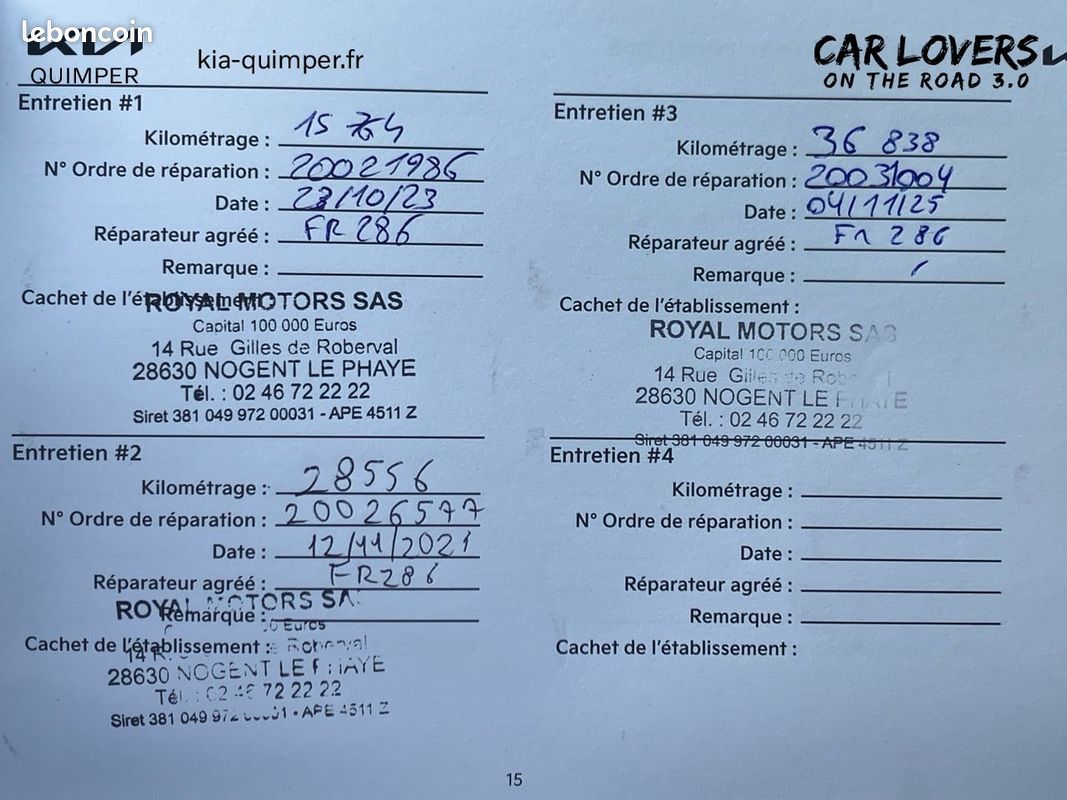 leboncoin
KIA
QUIMPER
kia-quimper.fr
CAR LOVERS
ON THE ROAD 3.0
Entretien #1
Kilométrage :
N° Ordre de réparation : 20021986
Date : 23/10/23
Réparateur agréé : FR 286
Remarque :
Cachet de l'établissement :
ROYAL MOTORS SAS
Capital 100 000 Euros
14 Rue Gilles de Roberval
28630 NOGENT LE PHAYE
Tél. : 02 46 72 22 22
Siret 381 049 972 00031 - APE 4511 Z
Entretien #2
Kilométrage : 28556
N° Ordre de réparation : 20026577
Date : 12/11/2021
Réparateur agréé : FR286
Remarque :
Cachet de l'établissement :
ROYAL MOTORS SA
Euros
14 R Roberval
28630 NOGENT LE PHAYE
Tél. : 02 46 72 22 22
Siret 381 049 972 00031 - APE 4511 Z
Entretien #3
Kilométrage : 36 838
N° Ordre de réparation : 20031004
Date : 04/11/25
Réparateur agréé : FR 286
Remarque : /
Cachet de l'établissement :
ROYAL MOTORS SAS
Capital 100 000 Euros
14 Rue Gilles de Rob l
28630 NOGENT LE PHAYE
Tél. : 02 46 72 22 22
Siret 381 049 972 00031 - APE 4511 Z
Entretien #4
Kilométrage :
N° Ordre de réparation :
Date :
Réparateur agréé :
Remarque :
Cachet de l'établissement :
15